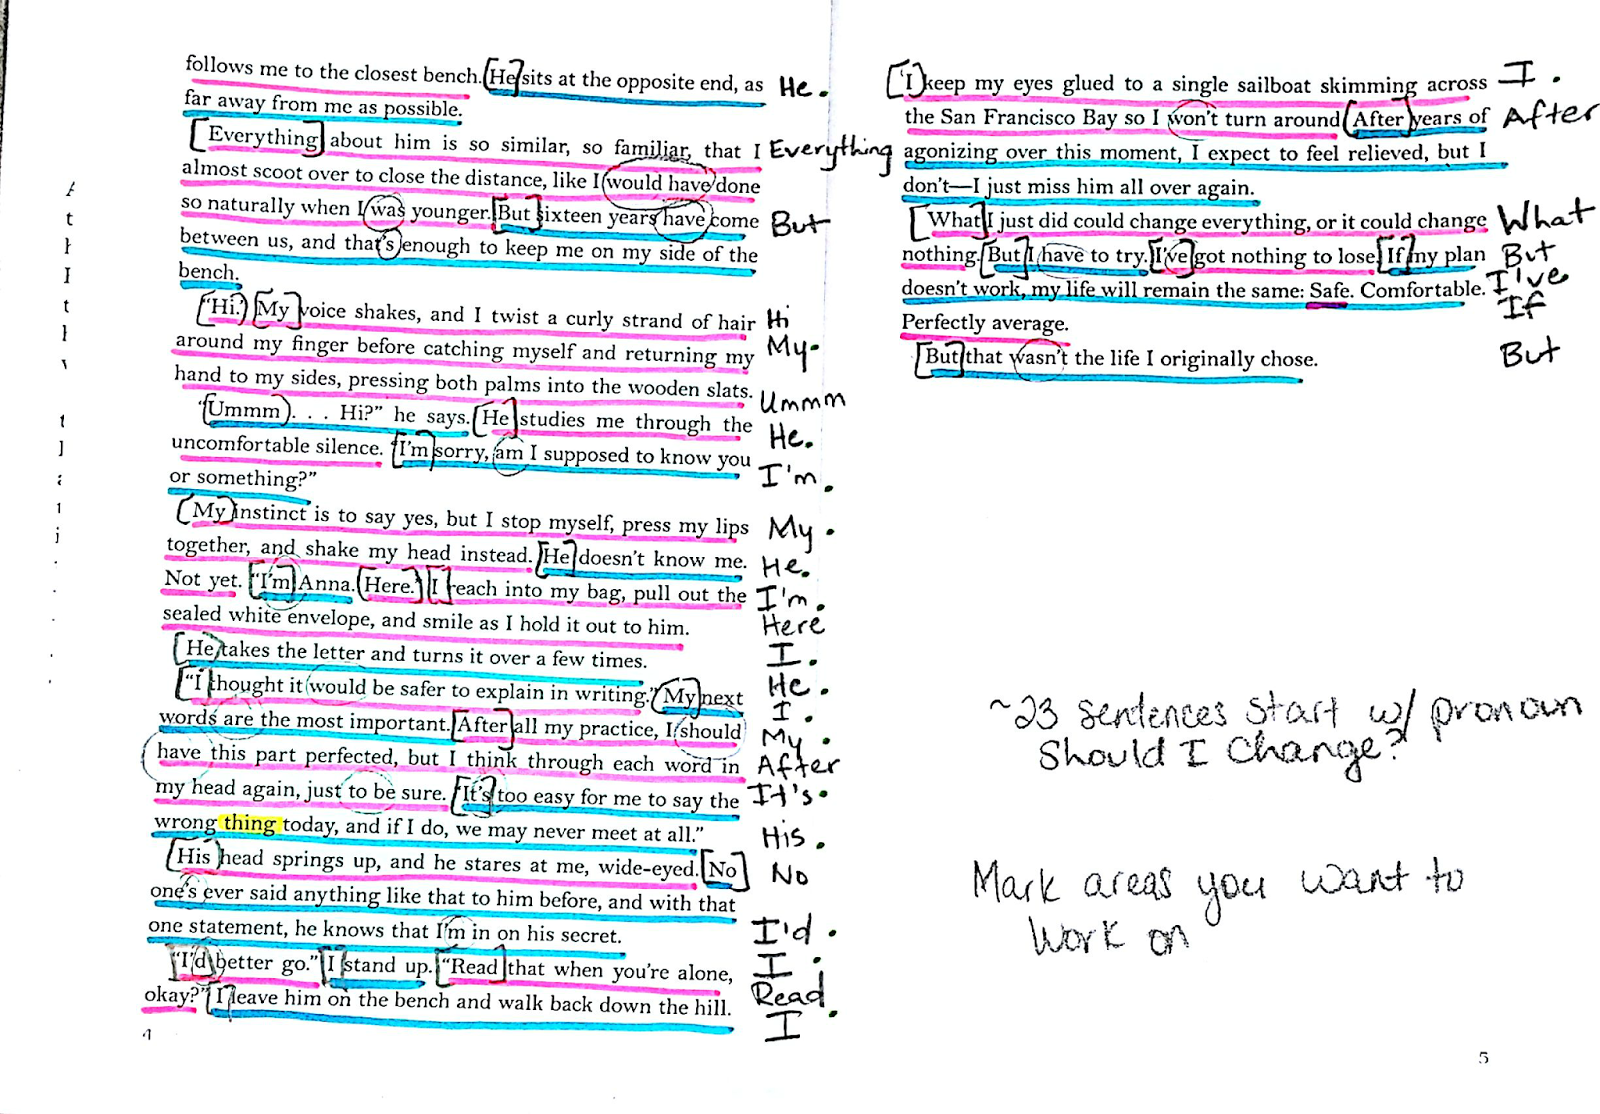 follows me to the closest bench. He sits at the opposite end, as
far away from me as possible.
Everything about him is so similar, so familiar, that I
almost scoot over to close the distance, like I would have done
so naturally when I was younger. But sixteen years have come
between us, and that's enough to keep me on my side of the
bench.
“Hi.” My voice shakes, and I twist a curly strand of hair
around my finger before catching myself and returning my
hand to my sides, pressing both palms into the wooden slats.
“Ummm . . . Hi?” he says. He studies me through the
uncomfortable silence. “I'm sorry, am I supposed to know you
or something?”
My instinct is to say yes, but I stop myself, press my lips
together, and shake my head instead. He doesn't know me.
Not yet. “I'm Anna. Here.” I reach into my bag, pull out the
sealed white envelope, and smile as I hold it out to him.
He takes the letter and turns it over a few times.
“I thought it would be safer to explain in writing.” My next
words are the most important. After all my practice, I should
have this part perfected, but I think through each word in
my head again, just to be sure. “It's too easy for me to say the
wrong thing today, and if I do, we may never meet at all.”
His head springs up, and he stares at me, wide-eyed. No
one's ever said anything like that to him before, and with that
one statement, he knows that I'm in on his secret.
“I'd better go.” I stand up. “Read that when you're alone,
okay?” I leave him on the bench and walk back down the hill.
4
He.
Everything
But
Hi
My.
Ummm
He.
I'm.
My.
He.
I'm.
Here
I.
He.
I.
My.
After
It's.
His.
No
I'd.
I.
Read
I.
I keep my eyes glued to a single sailboat skimming across
the San Francisco Bay so I won't turn around. After years of
agonizing over this moment, I expect to feel relieved, but I
don't—I just miss him all over again.
What I just did could change everything, or it could change
nothing. But I have to try. I've got nothing to lose. If my plan
doesn't work, my life will remain the same: Safe. Comfortable.
Perfectly average.
But that wasn't the life I originally chose.
I.
After
What
But
I've
If
But
~23 sentences start w/ pronoun
Should I change?
Mark areas you want to
work on
5